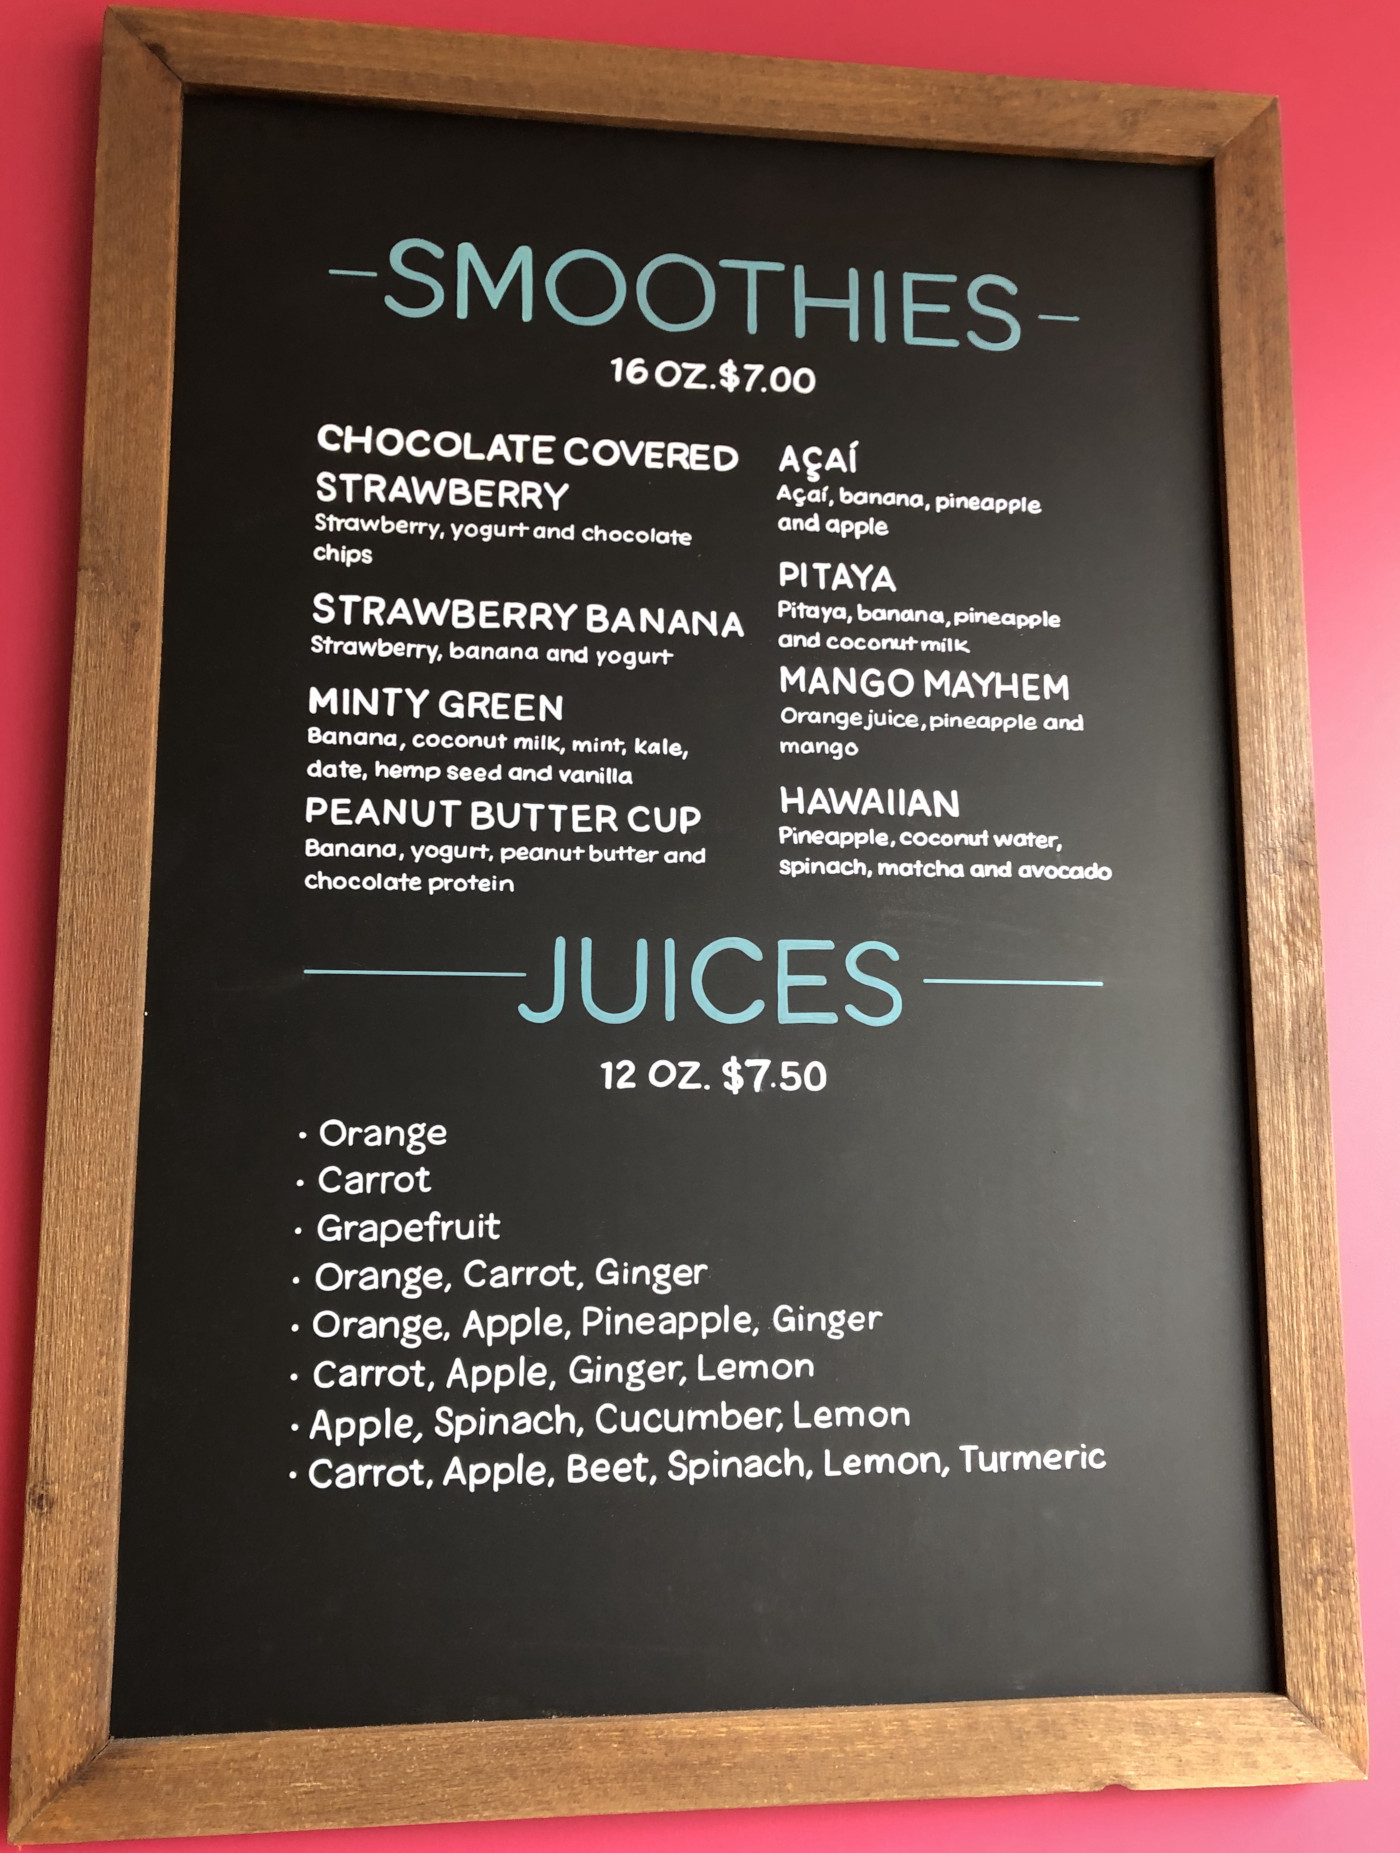 SMOOTHIES
16 OZ. $7.00
CHOCOLATE COVERED
STRAWBERRY
Strawberry, yogurt and chocolate
chips
STRAWBERRY BANANA
Strawberry, banana and yogurt
MINTY GREEN
Banana, coconut milk, mint, kale,
date, hemp seed and vanilla
PEANUT BUTTER CUP
Banana, yogurt, peanut butter and
chocolate protein
AÇAÍ
Açaí, banana, pineapple
and apple
PITAYA
Pitaya, banana, pineapple
and coconut milk
MANGO MAYHEM
Orange juice, pineapple and
mango
HAWAIIAN
Pineapple, coconut water,
spinach, matcha and avocado
JUICES
12 OZ. $7.50
• Orange
• Carrot
• Grapefruit
• Orange, Carrot, Ginger
• Orange, Apple, Pineapple, Ginger
• Carrot, Apple, Ginger, Lemon
• Apple, Spinach, Cucumber, Lemon
• Carrot, Apple, Beet, Spinach, Lemon, Turmeric